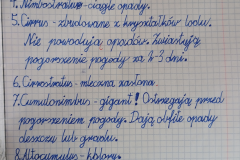 4. Nimbostratus - ciągłe opady.
5. Cirrus - zbudowane z kryształków lodu.
Nie powodują opadów. Zwiastują
pogorszenie pogody za 2-3 dni.
6. Cirrostratus - mleczna zasłona.
7. Cumulonimbus - giganci! Ostrzegają przed
pogorszeniem pogody. Dają obfite opady
deszczu lub gradu.
8. Altocumulus -